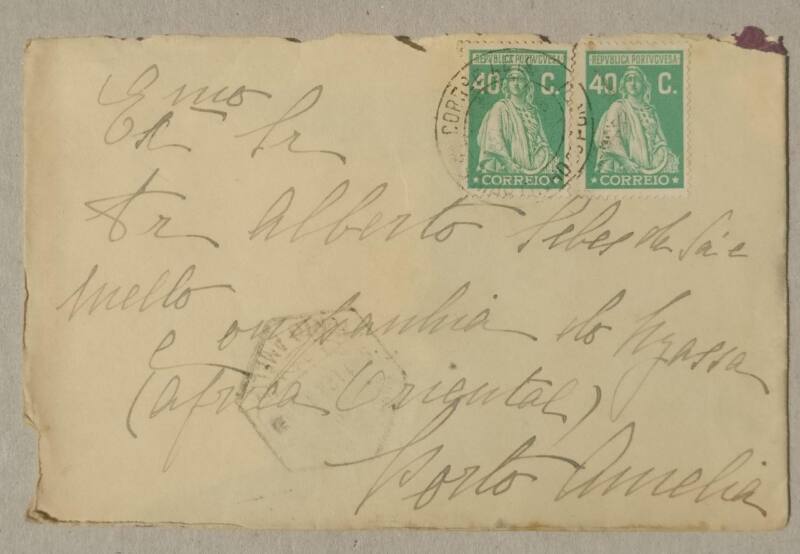 REPVBLICA PORTVGVESA
40 C.
CORREIO
REPVBLICA PORTVGVESA
40 C.
CORREIO
Exmo Sr
Dr Alberto de Sá e
Mello
Companhia do Nyassa
(Africa Oriental)
Porto Amelia